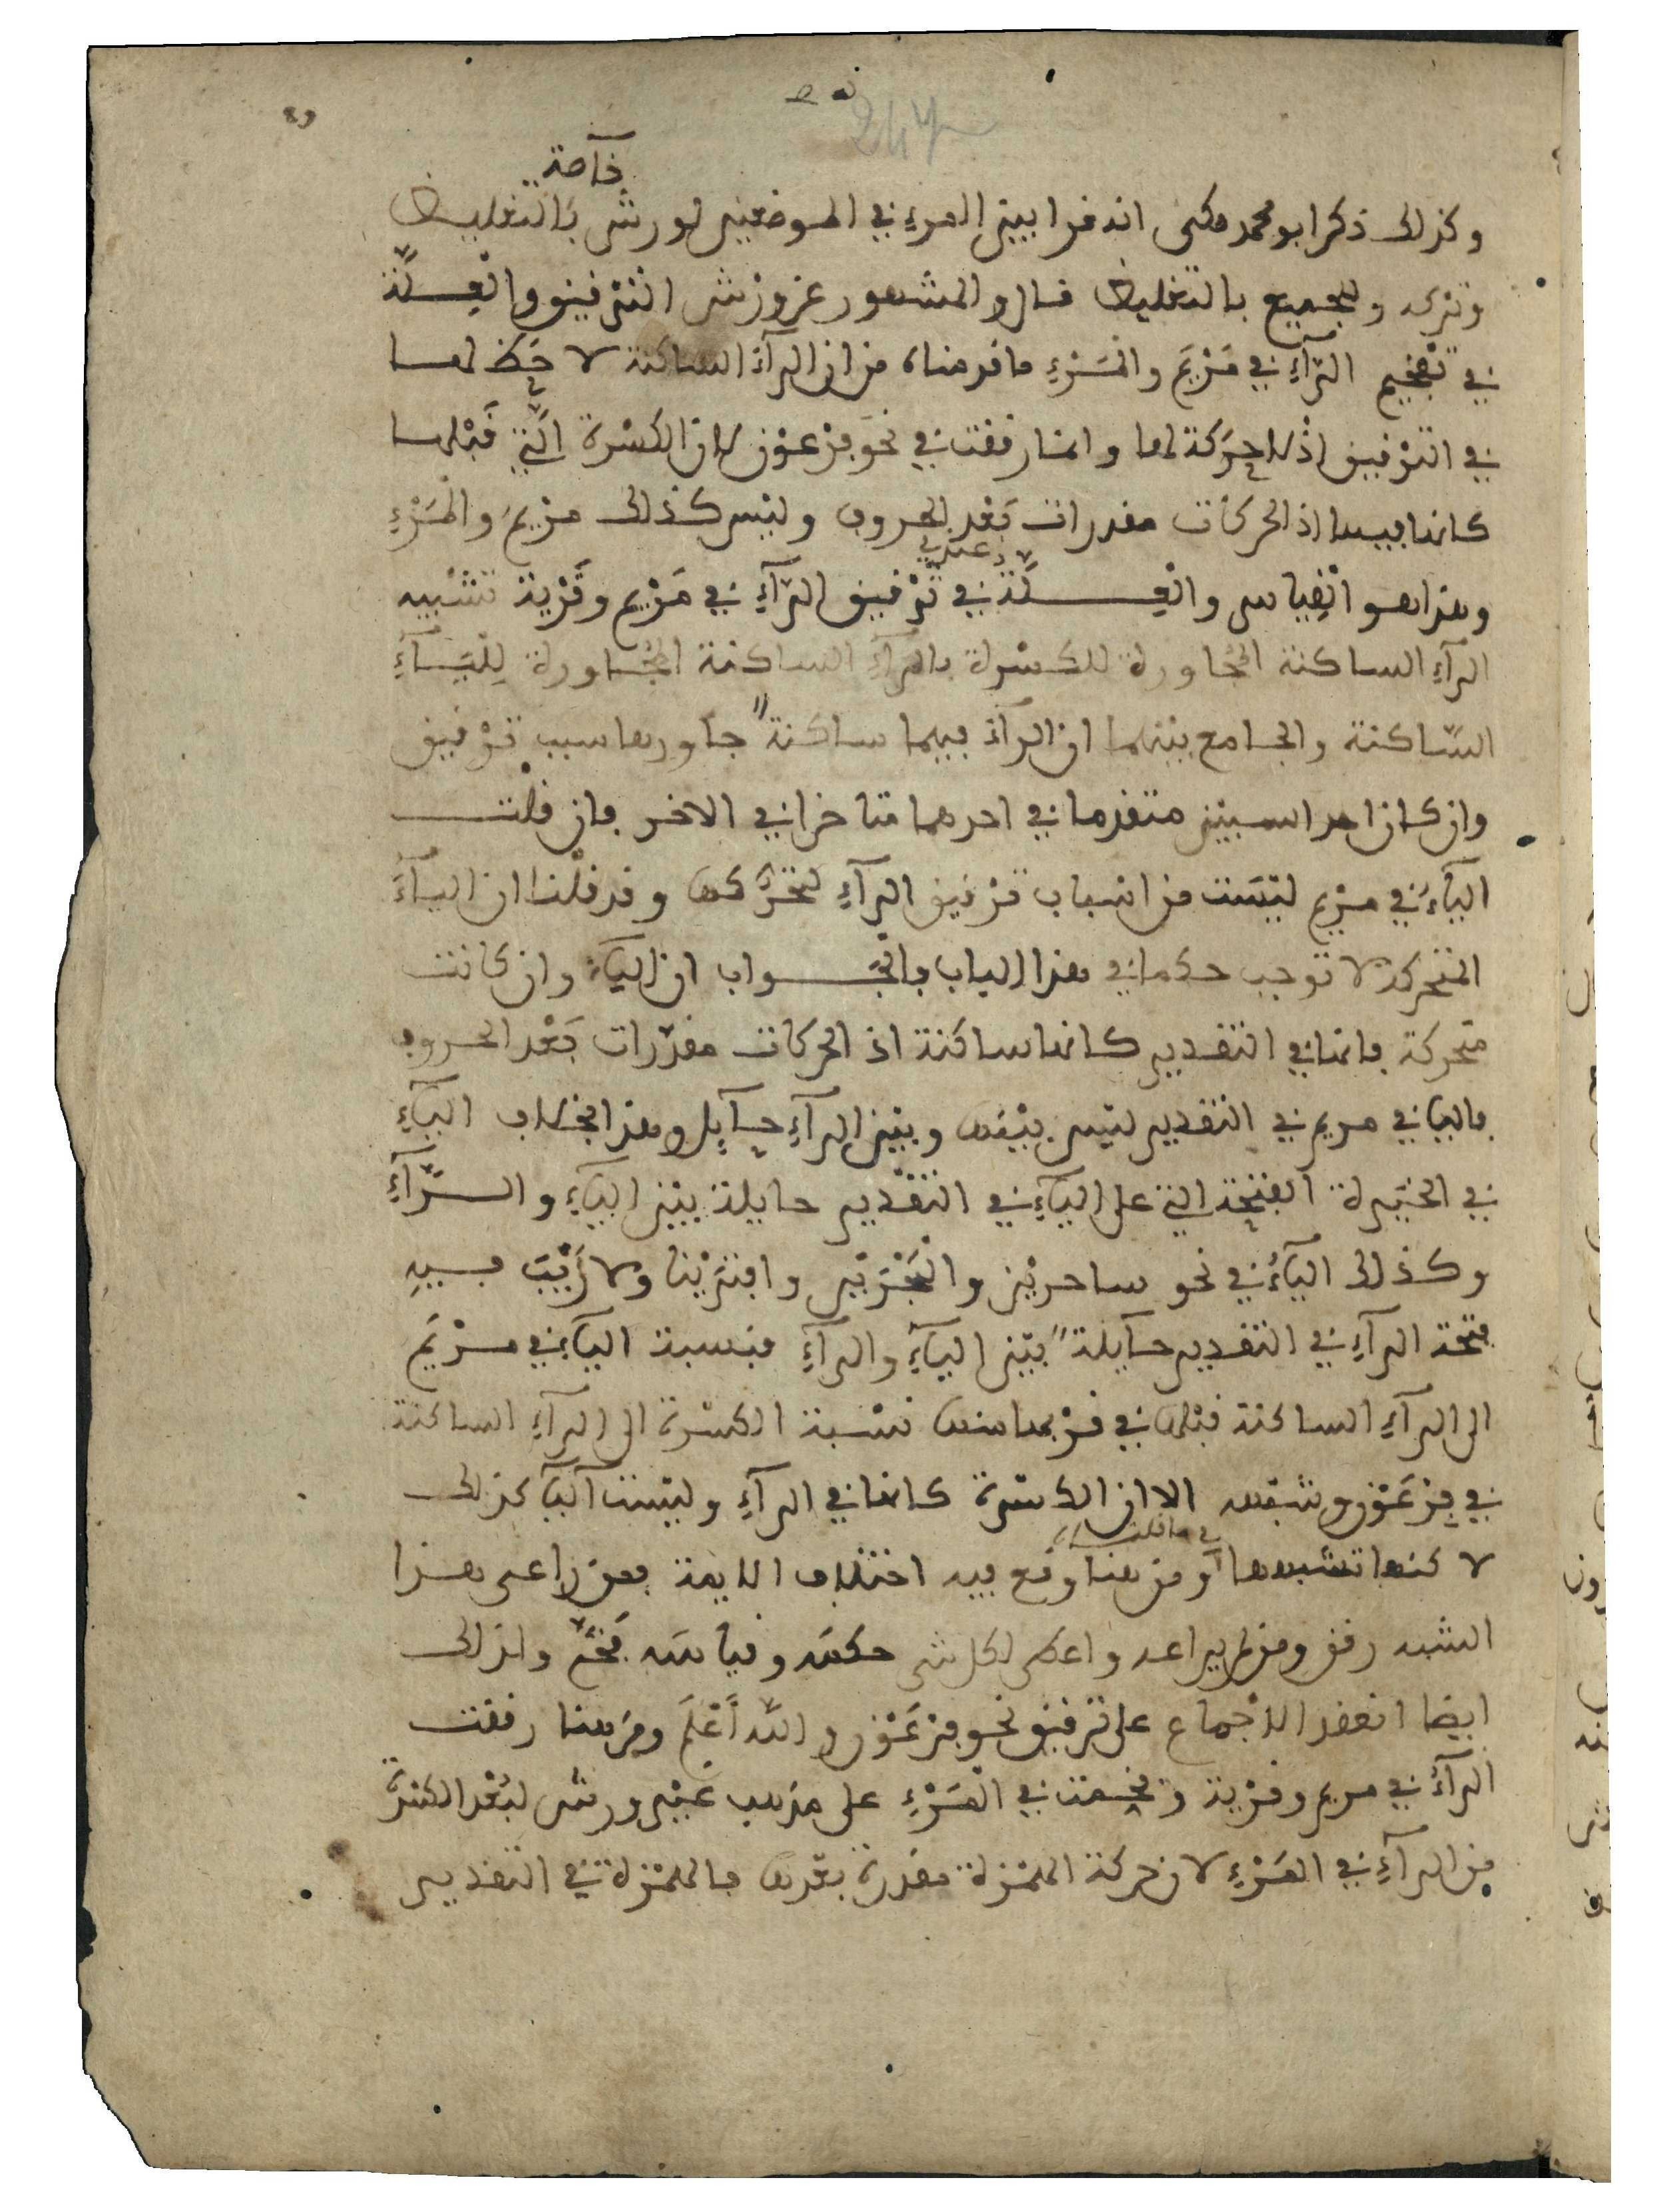 247
خآصة
وكذلك ذكر ابو محمد مكي انه قرا بين المرء في الموضعين لورش بالتغليظ
وتركه وللجميع بالتغليظ قال والمشهور عن ورش الترقيق والعِلّة
في تفخيم الرّآءِ في مَرْيَم والمَرْءِ ما قدمناه من ان الرآءَ الساكنة لا حَظ لها
في الترْقيق اذ لا حركة لها وانما رققت في نحو فِرْعَوْن لان الكسْرة التي قبْلها
كانها فيها اذ الحركات مقدرات بَعْد الحروف وليْس كذلك مرْيم والمَرْءِ
وهذا هو القِياس والعِلّة عندي في ترْقيق الرّآءِ في مَرْيم وقَرْية تشْبيه
الرآءِ الساكنة المجاورة للكسْرة بالرآءِ الساكنة المجاورة لِليَآءِ
السّاكنة والجامع بينهما ان الرآءَ فيهما ساكنة جاورها سبب ترْقيق
وان كان احد السببين متقدما في احدهما متاخرا في الاخر فان قلْت
اليآءُ في مرْيم ليْسَت من اسْباب ترْقيق الرآءِ لتحرُّكها وقد قلْنا ان اليآءَ
المتحركة لا توجب حكما في هذا الباب فالجَواب ان اليآءَ وان كانت
متحركة فانها في التقدير كانها ساكنة اذ الحركات مقدّرات بَعْد الحروف
فاليا في مريم في التقدير ليس بيْنها وبين الرآءِ حآيل وهذا بخلاف اليآءِ
في الخيَرة الفتحة التي على اليآءِ في التقْدير حايلة بيْن اليآءِ والرّآءِ
وكذلك اليآءُ في نحو ساحريْن والبَحْرَيْن وافتَرَيْنا ولا رَيْبَ فيهِ
فتحة الرآءِ في التقدير حآيلة بيْن اليآءِ والرآءِ فنسبة اليآءِ في مرْيَم
الى الرآءِ الساكنة قبْلها في قرْبها منها نسْبة الكسْرة الى الرآءِ الساكنة
في فِرْعَوْن وشبْهه الا ان الكسْرة كانها في الرآءِ وليْست اليآ كذلك
لا كنها تشبهها في ما قلت لك ومن هنا وقع فيه اختلاف الايمة فمن راعى هذا
الشبه رقق ومن لم يراعه واعطى لكل شي حكمَه وقياسَه فخّم ولذلك
ايضا انعقد الاجْماع على ترقيق نحو فِرْعَوْن والله أَعْلَم ومن هنا رققت
الرآءُ في مريم وقرْية وفخمت في المَرْءِ على مذهب غيْر ورش لبُعْد الكسْرة
من الرآءِ في المَرْءِ لان حركة الهمْزة مقدرة بعْدها فالهمْزة في التقدير